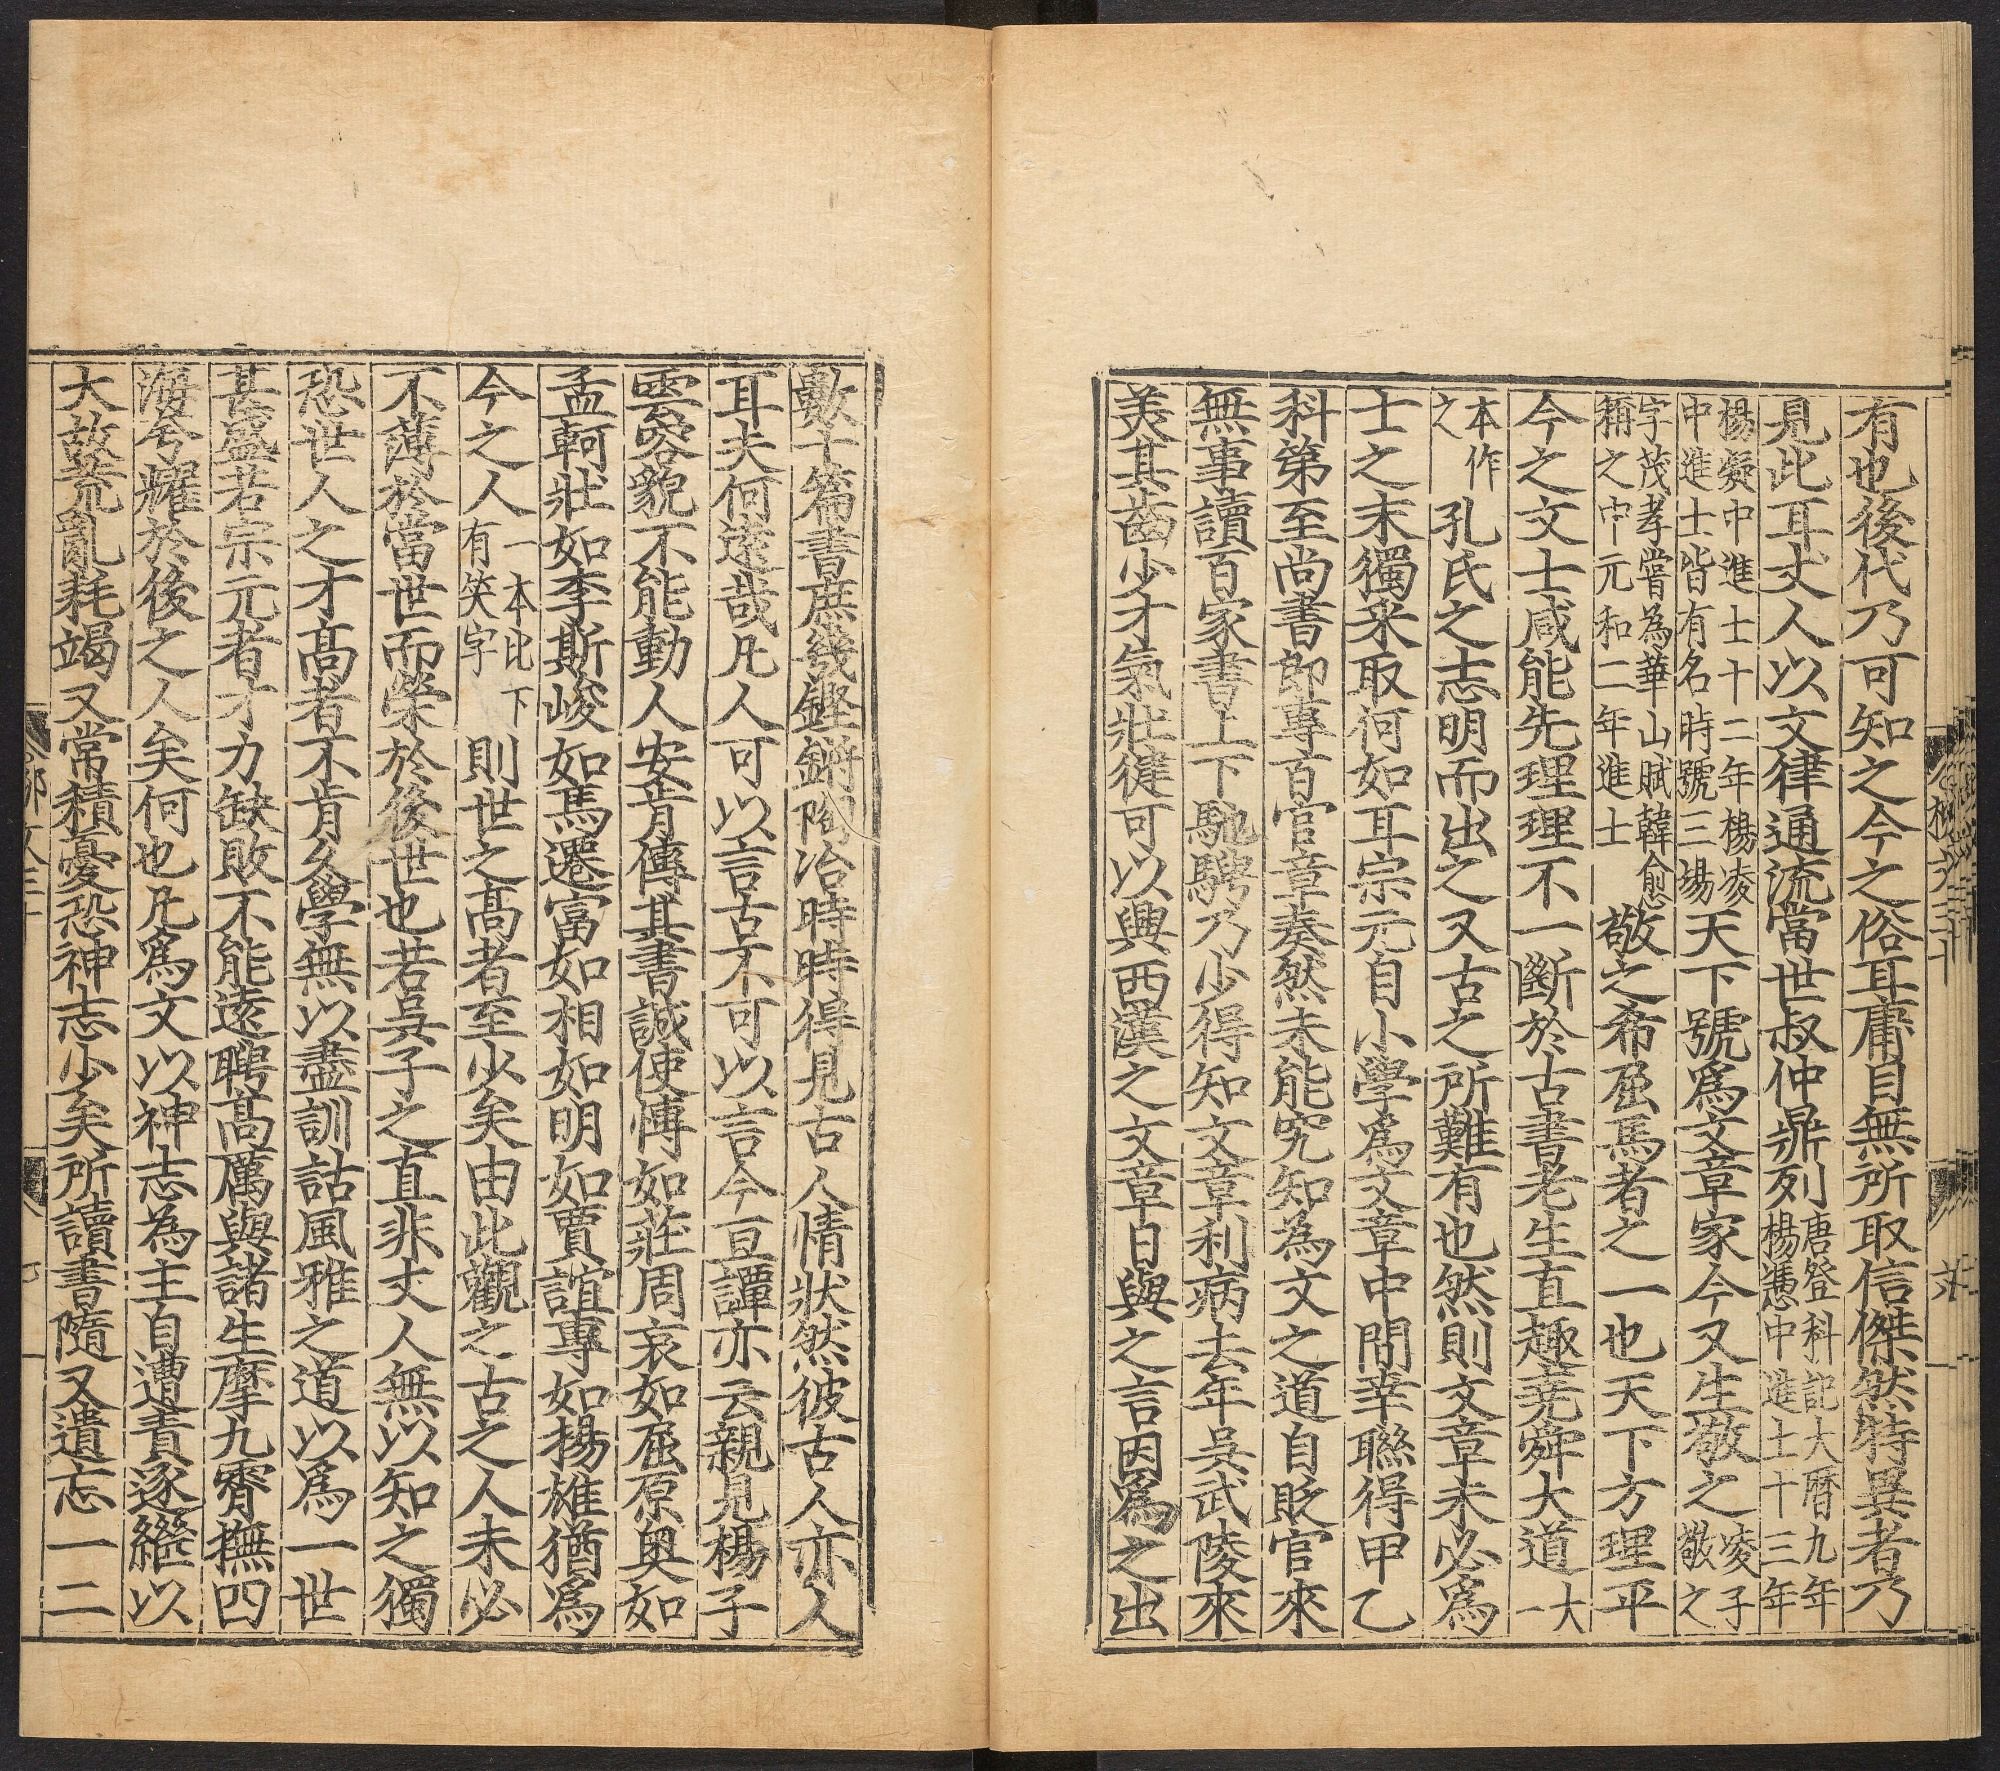 有也後代乃可知之今之俗耳庸目無所取信傑然特異者乃
見此耳丈人以文律通流當世叔仲鼎列唐登科記大曆九年
楊憑中進士十三年
楊凝中進士十二年楊凌
中進士皆有名時號三楊天下號爲文章家今又生敬之凌子
敬之
字茂孝嘗為華山賦韓愈
稱之中元和二年進士敬之希屈馬者之一也天下方理平
今之文士咸能先理理不一斷於古書老生直趣堯舜大道大
一
本作
之孔氏之志明而出之又古之所難有也然則文章未必爲
士之末獨采取何如耳宗元自小學爲文章中間幸聯得甲乙
科第至尚書郎專百官章奏然未能究知為文之道自貶官來
無事讀百家書上下馳騁乃少得知文章利病去年吳武陵來
美其齒少才氣壯健可以興西漢之文章日與之言因爲之出
數十篇書庶幾鏗鏘陶冶時時得見古人情狀然彼古人亦人
耳夫何遠哉凡人可以言古不可以言今亘譚亦云親見楊子
雲容貌不能動人安肯傳其書誠使博如莊周哀如屈原奥如
孟軻壯如李斯峻如馬遷富如相如明如賈誼專如揚雄猶爲
今之人一本比下
有笑字則世之高者至少矣由此觀之古之人未必
不薄於當世而榮於後世也若吳子之直非丈人無以知之獨
恐世人之才高者不肯久學無以盡訓詁風雅之道以爲一世
甚盛若宗元者才力缺敗不能遠聘高厲與諸生摩九霄撫四
海兮耀於後之人矣何也凡爲文以神志為主自遭責逐繼以
大故荒亂耗竭又常積憂恐神志少矣所讀書隨又遺忘一二